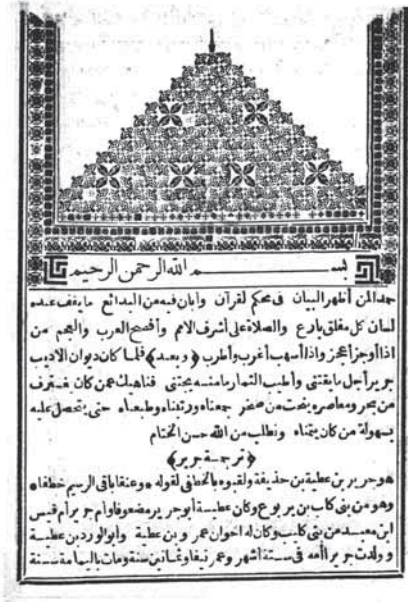 بسم الله الرحمن الرحيم
حمدا لمن أظهر البيان في محكم لقرآن وأبان فيه من البدائع ما يقف عنده
لسان كل مفلق بارع والصلاة على أشرف الامم وأفصح العرب والعجم من
اذا أوجز أعجز واذا أسهب أغرب وأطرب (وبعد) فلما كان ديوان الاديب
جرير أجل ما يقتنى وأطيب الثمار ما منه يجتنى فناهيك عمن كان يغترف
من بحر ومعاصره ينحت من صخر جمعناه ورتبناه وطبعناه حتى يتحصل عليه
بسهولة من كان يتمناه ونطلب من الله حسن الختام
(ترجمة جرير)
هو جرير بن عطية بن حذيفة ولقبوه بالخطفى لقوله * وعنقا باقى الرسيم خطفا *
وهو من بنى كليب بن يربوع وكان عطيسة أبو جرير مضعوفا وأم جرير أم قيس
ابن معبد من بنى كليب وكان له اخوان عمرو بن عطية وأبو الورد بن عطية
وولدت جريرا أمه فى ستة أشهر وعمر نيفا وثمانين سنة ومات باليمامة سنة